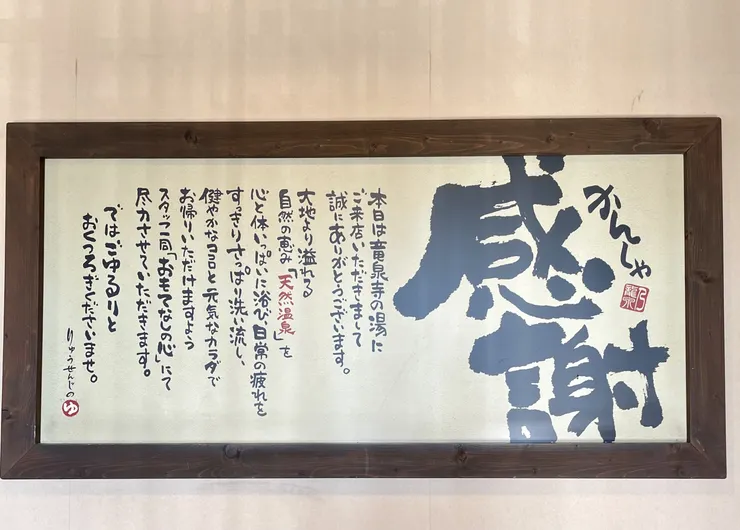 感謝
かんしゃ
本日は竜泉寺の湯に
ご来店いただきまして
誠にありがとうございます。
大地より溢れる
自然の恵み「天然温泉」を
心と体いっぱいに浴び日常の疲れを
すっきり、さっぱり洗い流し、
健やかなココロと元気なカラダで
お帰りいただけますよう
スタッフ一同「おもてなしの心」にて
尽力させていただきます。
ではごゆるりと
おくつろぎくださいませ。
りゅうせんじの
ゆ